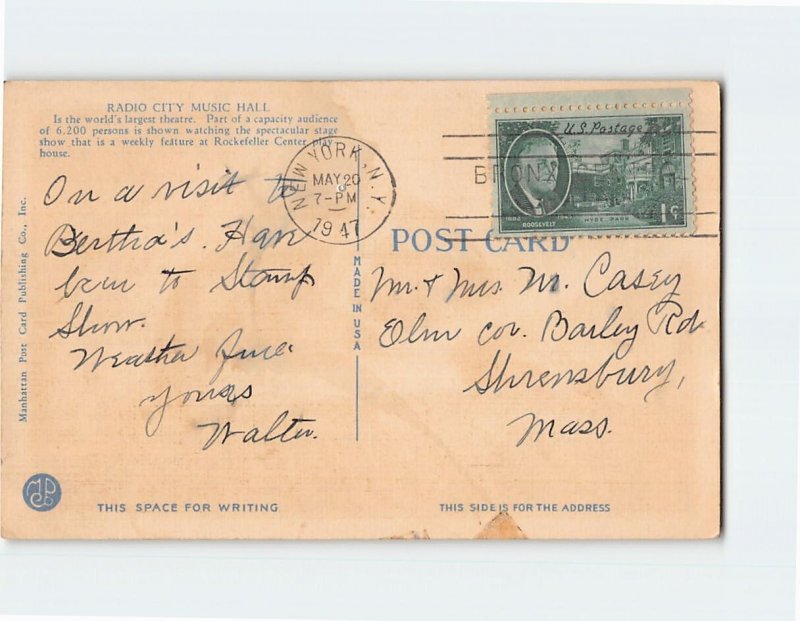 RADIO CITY MUSIC HALL
Is the world's largest theatre. Part of a capacity audience
of 6,200 persons is shown watching the spectacular stage
show that is a weekly feature at Rockefeller Center play-
house.
On a visit to
Bertha's. Have
been to Stamp
Show.
Weather fine.
Yours
Walter.
THIS SPACE FOR WRITING
Manhattan Post Card Publishing Co., Inc.
MADE IN USA
NEW YORK, N.Y.
MAY 20
7-PM
1947
BRONX
U.S. Postage
1882
ROOSEVELT
HYDE PARK
1¢
POST CARD
Mr. & Mrs. M. Casey
Olm cor. Barley Rd
Shrewsbury,
Mass.
THIS SIDE IS FOR THE ADDRESS